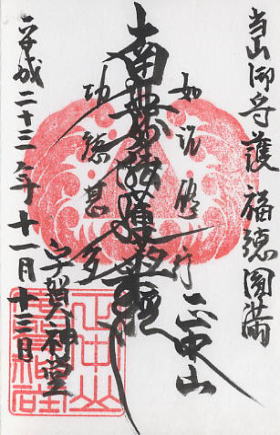 当山御守護福徳圓満
如説修行
南無妙法蓮華經
功徳甚多
正中山
宇賀神堂
平成二十三年十一月十三日
正中山